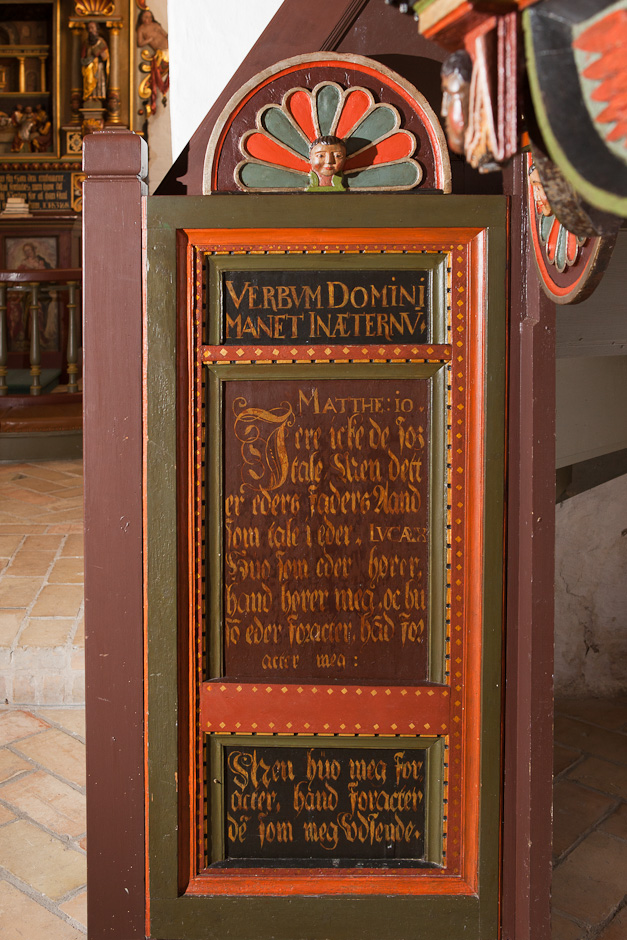 VERBVM DOMINI
MANET IN ÆTERNV.
MATTHE: 10.
I ere icke de som
tale Men dett
er eders faders Aand
som tale i eder. LUCÆ:
Huo som eder hører,
hand hører meg, oc hu
so eder foracter, hād fo
acter meg:
Men huo meg for
acter, hand foracter
dē som meg Vdsende.